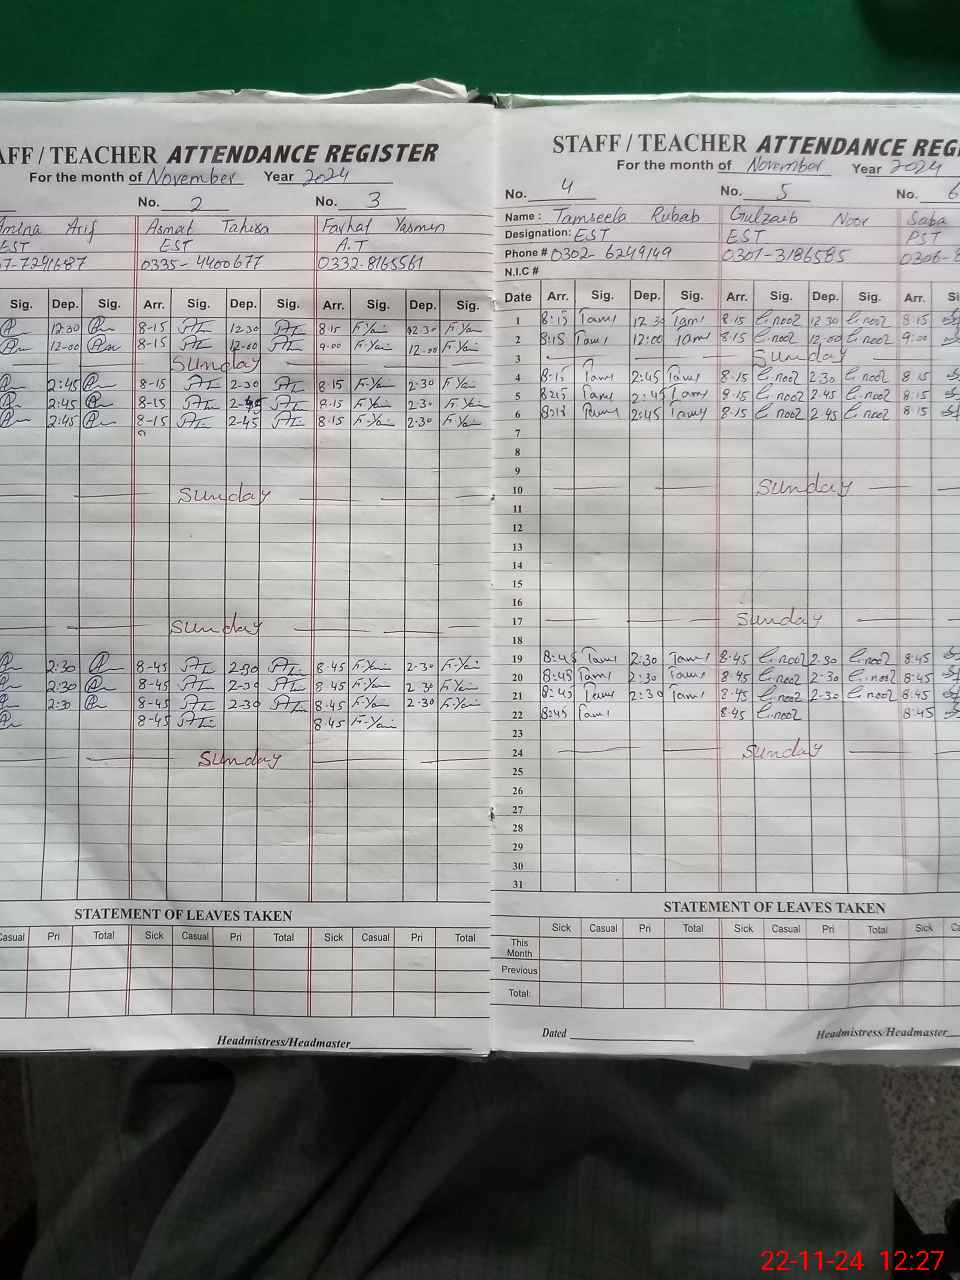 AFF / TEACHER ATTENDANCE REGISTER
For the month of November Year 2024
No. 2 No. 3
Amina Arif Asmat Tahira Farhat Yasmin
EST EST A.T
7-7291687 0335-4400677 0332-8165561
Sig. Dep. Sig. Arr. Sig. Dep. Sig. Arr. Sig. Dep. Sig.
12:30 8-15 12-30 8·15 F-Yasi 12.30 F-Yasi
12-00 8-15 12-00 9.00 F-Yasi 12-00 F-Yasi
Sunday
2:45 8-15 2-30 8·15 F-Yasi 2·30 F-Yasi
2:45 8-15 2-45 8·15 F-Yasi 2·30 F-Yasi
2:45 8-15 2-45 8·15 F-Yasi 2·30 F-Yasi
Sunday
Sunday
2:30 8-45 2-30 8·45 F-Yasi 2·30 F-Yasi
2:30 8-45 2-30 8·45 F-Yasi 2·30 F-Yasi
2:30 8-45 2-30 8·45 F-Yasi 2·30 F-Yasi
8-45 8·45 F-Yasi
Sunday
STATEMENT OF LEAVES TAKEN
Casual Pri Total Sick Casual Pri Total Sick Casual Pri Total
Headmistress/Headmaster
STAFF / TEACHER ATTENDANCE REG
For the month of November Year 2024
No. 4 No. 5 No. 6
Name : Tamseela Rubab Gulzaib Noor Saba
Designation: EST EST PST
Phone # 0302-6249149 0301-3186585 0306-8
N.I.C #
Date Arr. Sig. Dep. Sig. Arr. Sig. Dep. Sig. Arr. Si
1 8:15 Tams 12 30 Tams 8·15 G.noor 12 30 G.noor 8·15
2 8:15 Tams 12:00 Tams 8·15 G.noor 12,00 G.noor 9:00
3 Sunday
4 8:15 Tams 2:45 Tams 8·15 G.noor 2·30 G.noor 8·15
5 8:15 Tams 2:45 Tams 8·15 G.noor 2·45 G.noor 8·15
6 8:15 Tams 2:45 Tams 8·15 G.noor 2·45 G.noor 8·15
7
8
9
10 Sunday
11
12
13
14
15
16
17 Sunday
18
19 8:45 Tams 2:30 Tams 8·45 G.noor 2-30 G.noor 8:45
20 8:45 Tams 2:30 Tams 8·45 G.noor 2-30 G.noor 8:45
21 8:45 Tams 2:30 Tams 8·45 G.noor 2-30 G.noor 8·45
22 8:45 Tams 8·45 G.noor 8:45
23
24 Sunday
25
26
27
28
29
30
31
STATEMENT OF LEAVES TAKEN
Sick Casual Pri Total Sick Casual Pri Total Sick Ca
This Month
Previous
Total:
Dated Headmistress/Headmaster
22-11-24 12:27